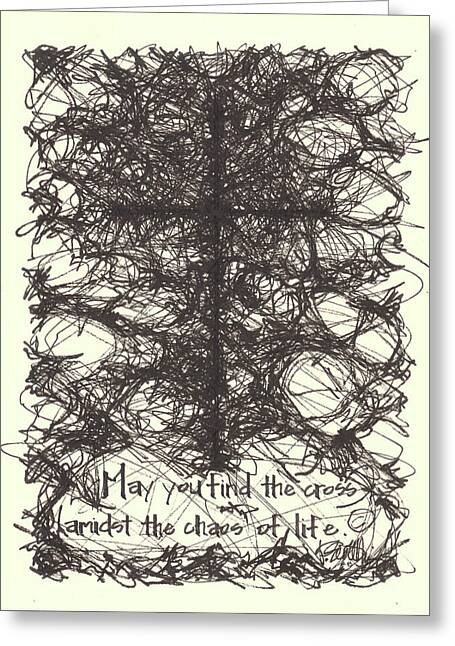 May you find the cross
amidst the chaos of life.